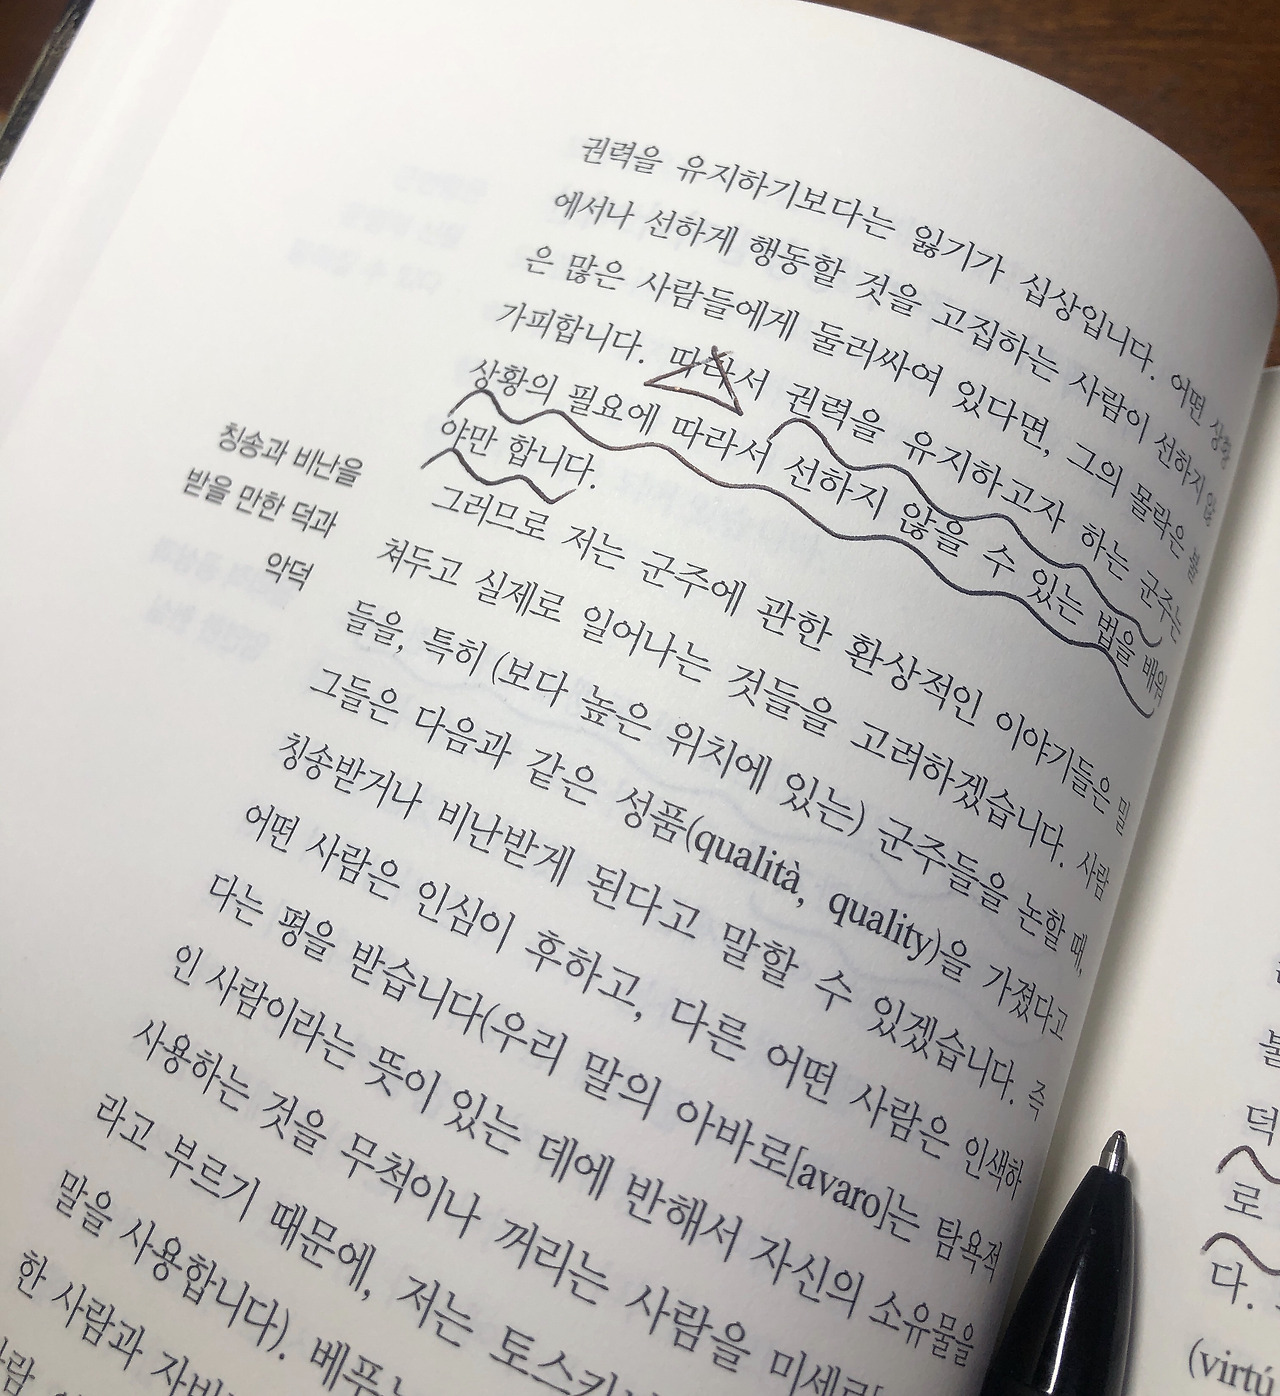 권력을 유지하기보다는 잃기가 십상입니다. 어떤 상황
에서나 선하게 행동할 것을 고집하는 사람이 선하지 않
은 많은 사람들에게 둘러싸여 있다면, 그의 몰락은 불
가피합니다. 따라서 권력을 유지하고자 하는 군주는
상황의 필요에 따라서 선하지 않을 수 있는 법을 배워
야만 합니다.
칭송과 비난을
받을 만한 덕과
악덕
그러므로 저는 군주에 관한 환상적인 이야기들은 밀
쳐두고 실제로 일어나는 것들을 고려하겠습니다. 사람
들을, 특히 (보다 높은 위치에 있는) 군주들을 논할 때,
그들은 다음과 같은 성품(qualità, quality)을 가졌다고
칭송받거나 비난받게 된다고 말할 수 있겠습니다. 즉
어떤 사람은 인심이 후하고, 다른 어떤 사람은 인색하
다는 평을 받습니다(우리 말의 아바로[avaro]는 탐욕적
인 사람이라는 뜻이 있는 데에 반해서 자신의 소유물을
사용하는 것을 무척이나 꺼리는 사람을 미세로
라고 부르기 때문에, 저는 토스카나
말을 사용합니다). 베푸는
한 사람과
덕
로
다.
(virtú